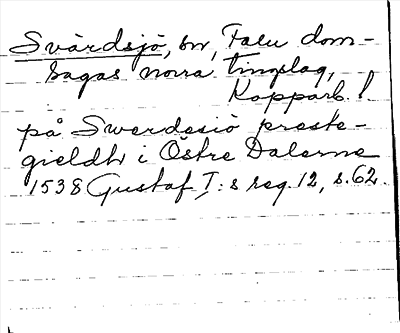 Svärdsjö, sn, Falu dom-
sagas norra tingslag,
Kopparb. l
på Swerdesiö preste-
gieldh i Östre Dalerne
1538 Gustaf I:s reg. 12, s. 62.